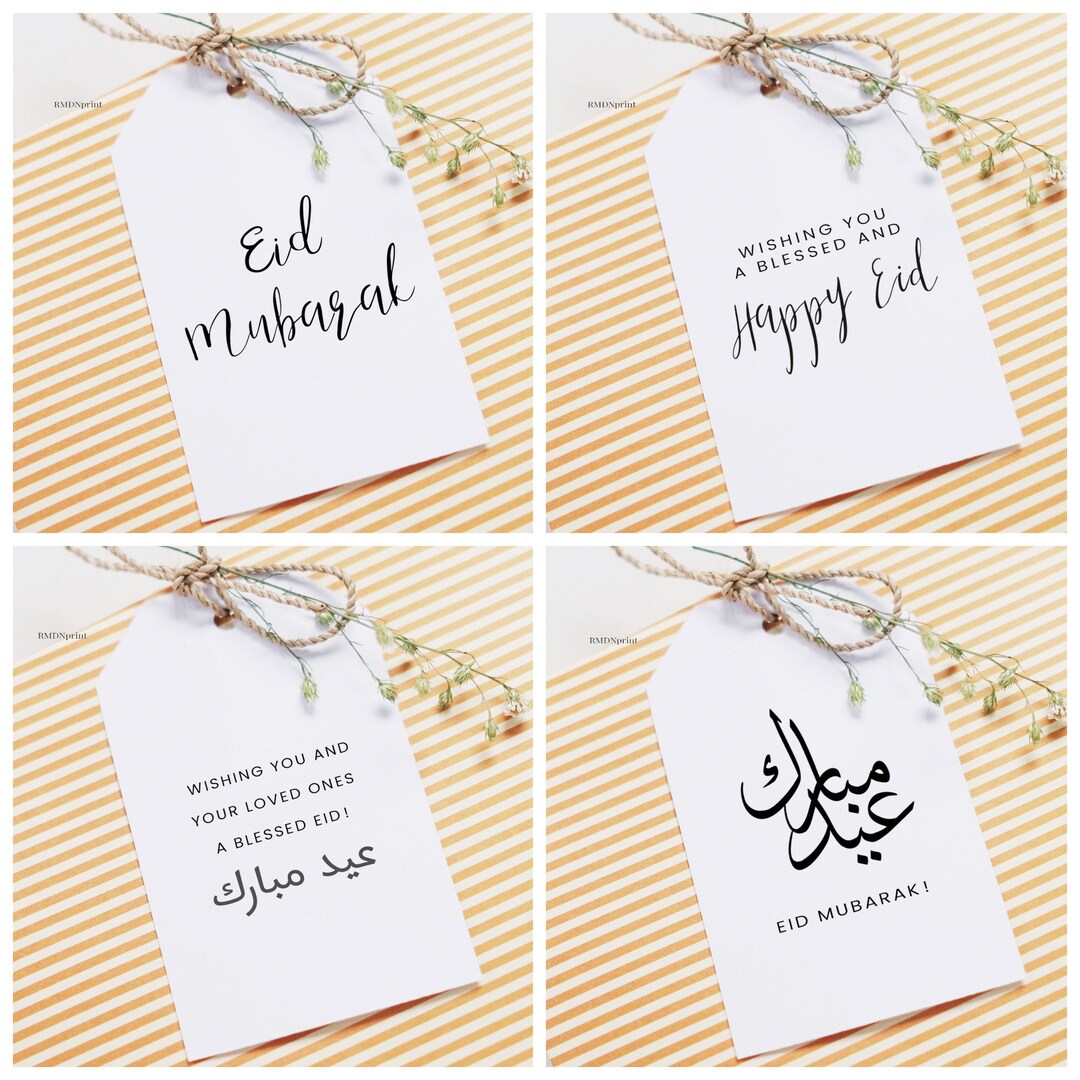 RMDNprint
Eid
Mubarak
RMDNprint
WISHING YOU
A BLESSED AND
Happy Eid
RMDNprint
WISHING YOU AND
YOUR LOVED ONES
A BLESSED EID!
عيد مبارك
RMDNprint
عيد مبارك
EID MUBARAK!